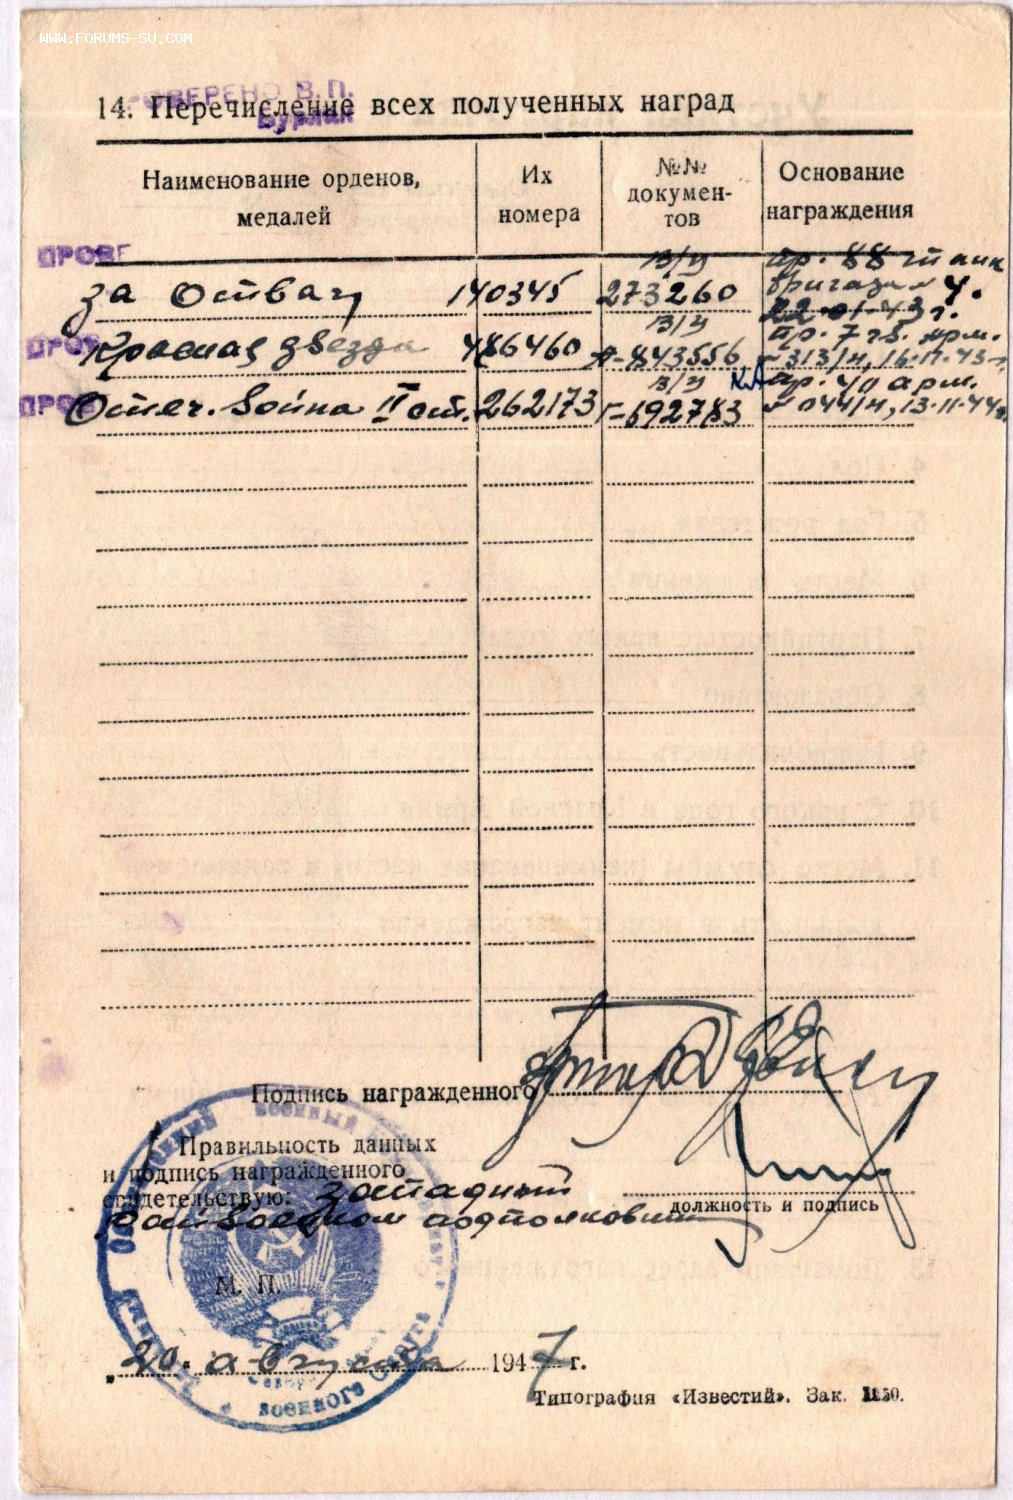 WWW.FORUMS-SU.COM
ПРОВЕРЕНО В.П.
Бурлак
14. Перечисление всех полученных наград
Наименование орденов, медалей
Их номера
№№ документов
Основание награждения
ПРОВЕ
За Отвагу 140345 в/у 273260 пр. 88 танк бригады № 4. 22-01-43 г.
ПРОВ
Красная звезда 486460 в/у А-843556 пр. 7 гв. арм. № 313/н, 16.11.43 г.
ПРОВ
Отеч. Война II ст. 262173 в/у Г-692783 пр. 40 арм. № 044/н, 13.11.44 г.
Подпись награжденного
Правильность данных
и подпись награжденного
свидетельствую: Западный
райвоенком подполковник
должность и подпись
М. П.
военного округа
20. августа 1947 г.
Типография «Известий». Зак. 1150.